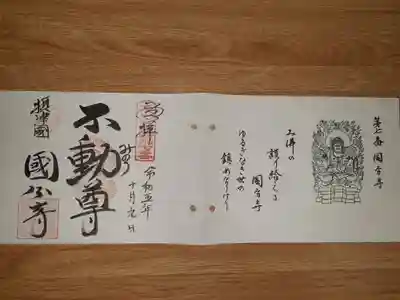 第七番 国分寺
み佛の
護り給える 国分寺
ゆるぎなき世の
鎮めなりけり
令和五年
十月九日
不動尊
摂津國
國分寺